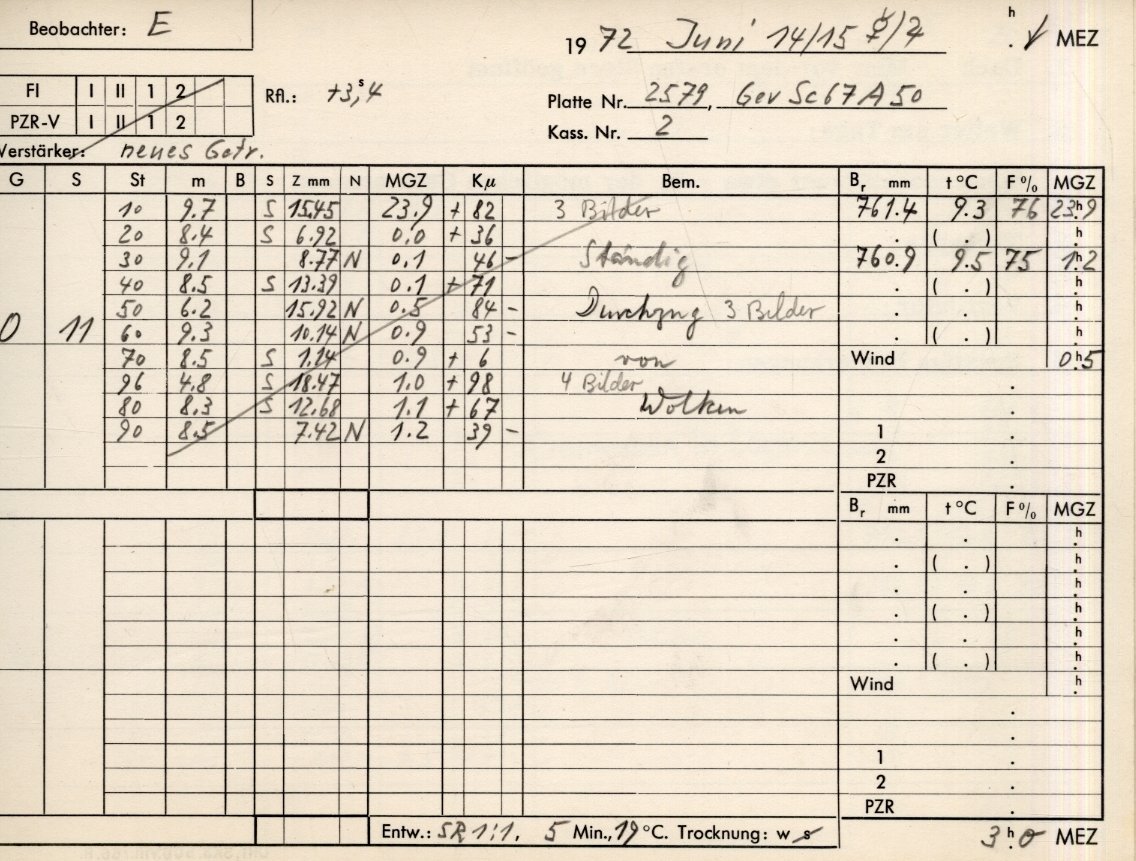 Beobachter: E
1972 Juni 14/15 ☿/♃ h . ✓ MEZ
FI I II 1 2
PZR-V I II 1 2
Rfl.: +3,ˢ4
Platte Nr. 2579, Gev Sc67A50
Kass. Nr. 2
Verstärker: neues Getr.
G S St m B S Z mm N MGZ Kμ Bem. Br mm t °C F % MGZ
10 9.7 S 15.45 23.9 + 82 3 Bilder 761.4 9.3 76 23ʰ.9
20 8.4 S 6.92 0.0 + 36 . ( . ) h.
30 9.1 8.77 N 0.1 46 - Ständig 760.9 9.5 75 1ʰ.2
40 8.5 S 13.39 0.1 + 71 . ( . ) h.
50 6.2 15.92 N 0.5 84 - Durchzug 3 Bilder . . h.
O 11 60 9.3 10.14 N 0.9 53 - . ( . ) h.
70 8.5 S 1.14 0.9 + 6 von Wind 0ʰ.5
96 4.8 S 18.47 1.0 + 98 4 Bilder .
80 8.3 S 12.68 1.1 + 67 Wolken .
90 8.5 7.42 N 1.2 39 - 1 .
2 .
PZR .
Br mm t °C F % MGZ
. . h.
. ( . ) h.
. . h.
. ( . ) h.
. . h.
. ( . ) h.
Wind h.
.
.
1 .
2 .
PZR .
Entw.: SR 1:1, 5 Min., 19 °C. Trocknung: w s
3ʰ.0 MEZ